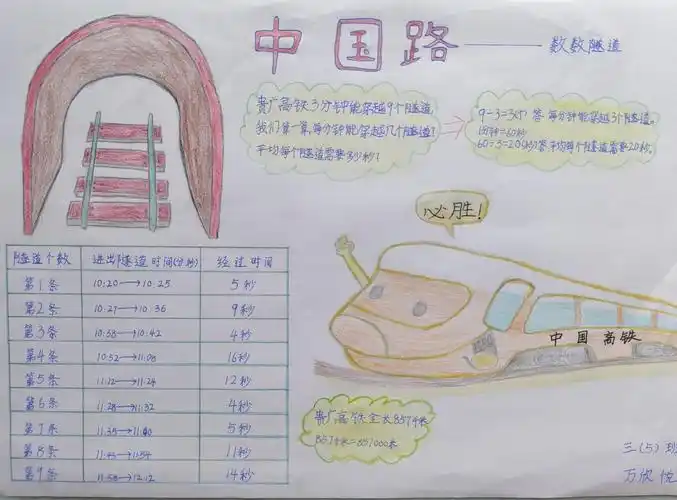 中国路——数数隧道
贵广高铁3分钟能穿越9个隧道
我们算一算,每分钟能穿越几个隧道?
平均每个隧道需要多少秒?
9÷3=3(个) 答:每分钟能穿越3个隧道。
1分钟=60秒
60÷3=20(秒) 答:平均每个隧道需要20秒。
必胜!
隧道个数 进出隧道时间(分秒) 经过时间
第1条 10:20→10:25 5秒
第2条 10:27→10:36 9秒
第3条 10:38→10:42 4秒
第4条 10:52→11:08 16秒
第5条 11:12→11:24 12秒
第6条 11:28→11:32 4秒
第7条 11:35→11:40 5秒
第8条 11:43→11:54 11秒
第9条 11:58→12:12 14秒
中国高铁
贵广高铁全长857千米
857千米=857000米
三(5)班
万欣悦